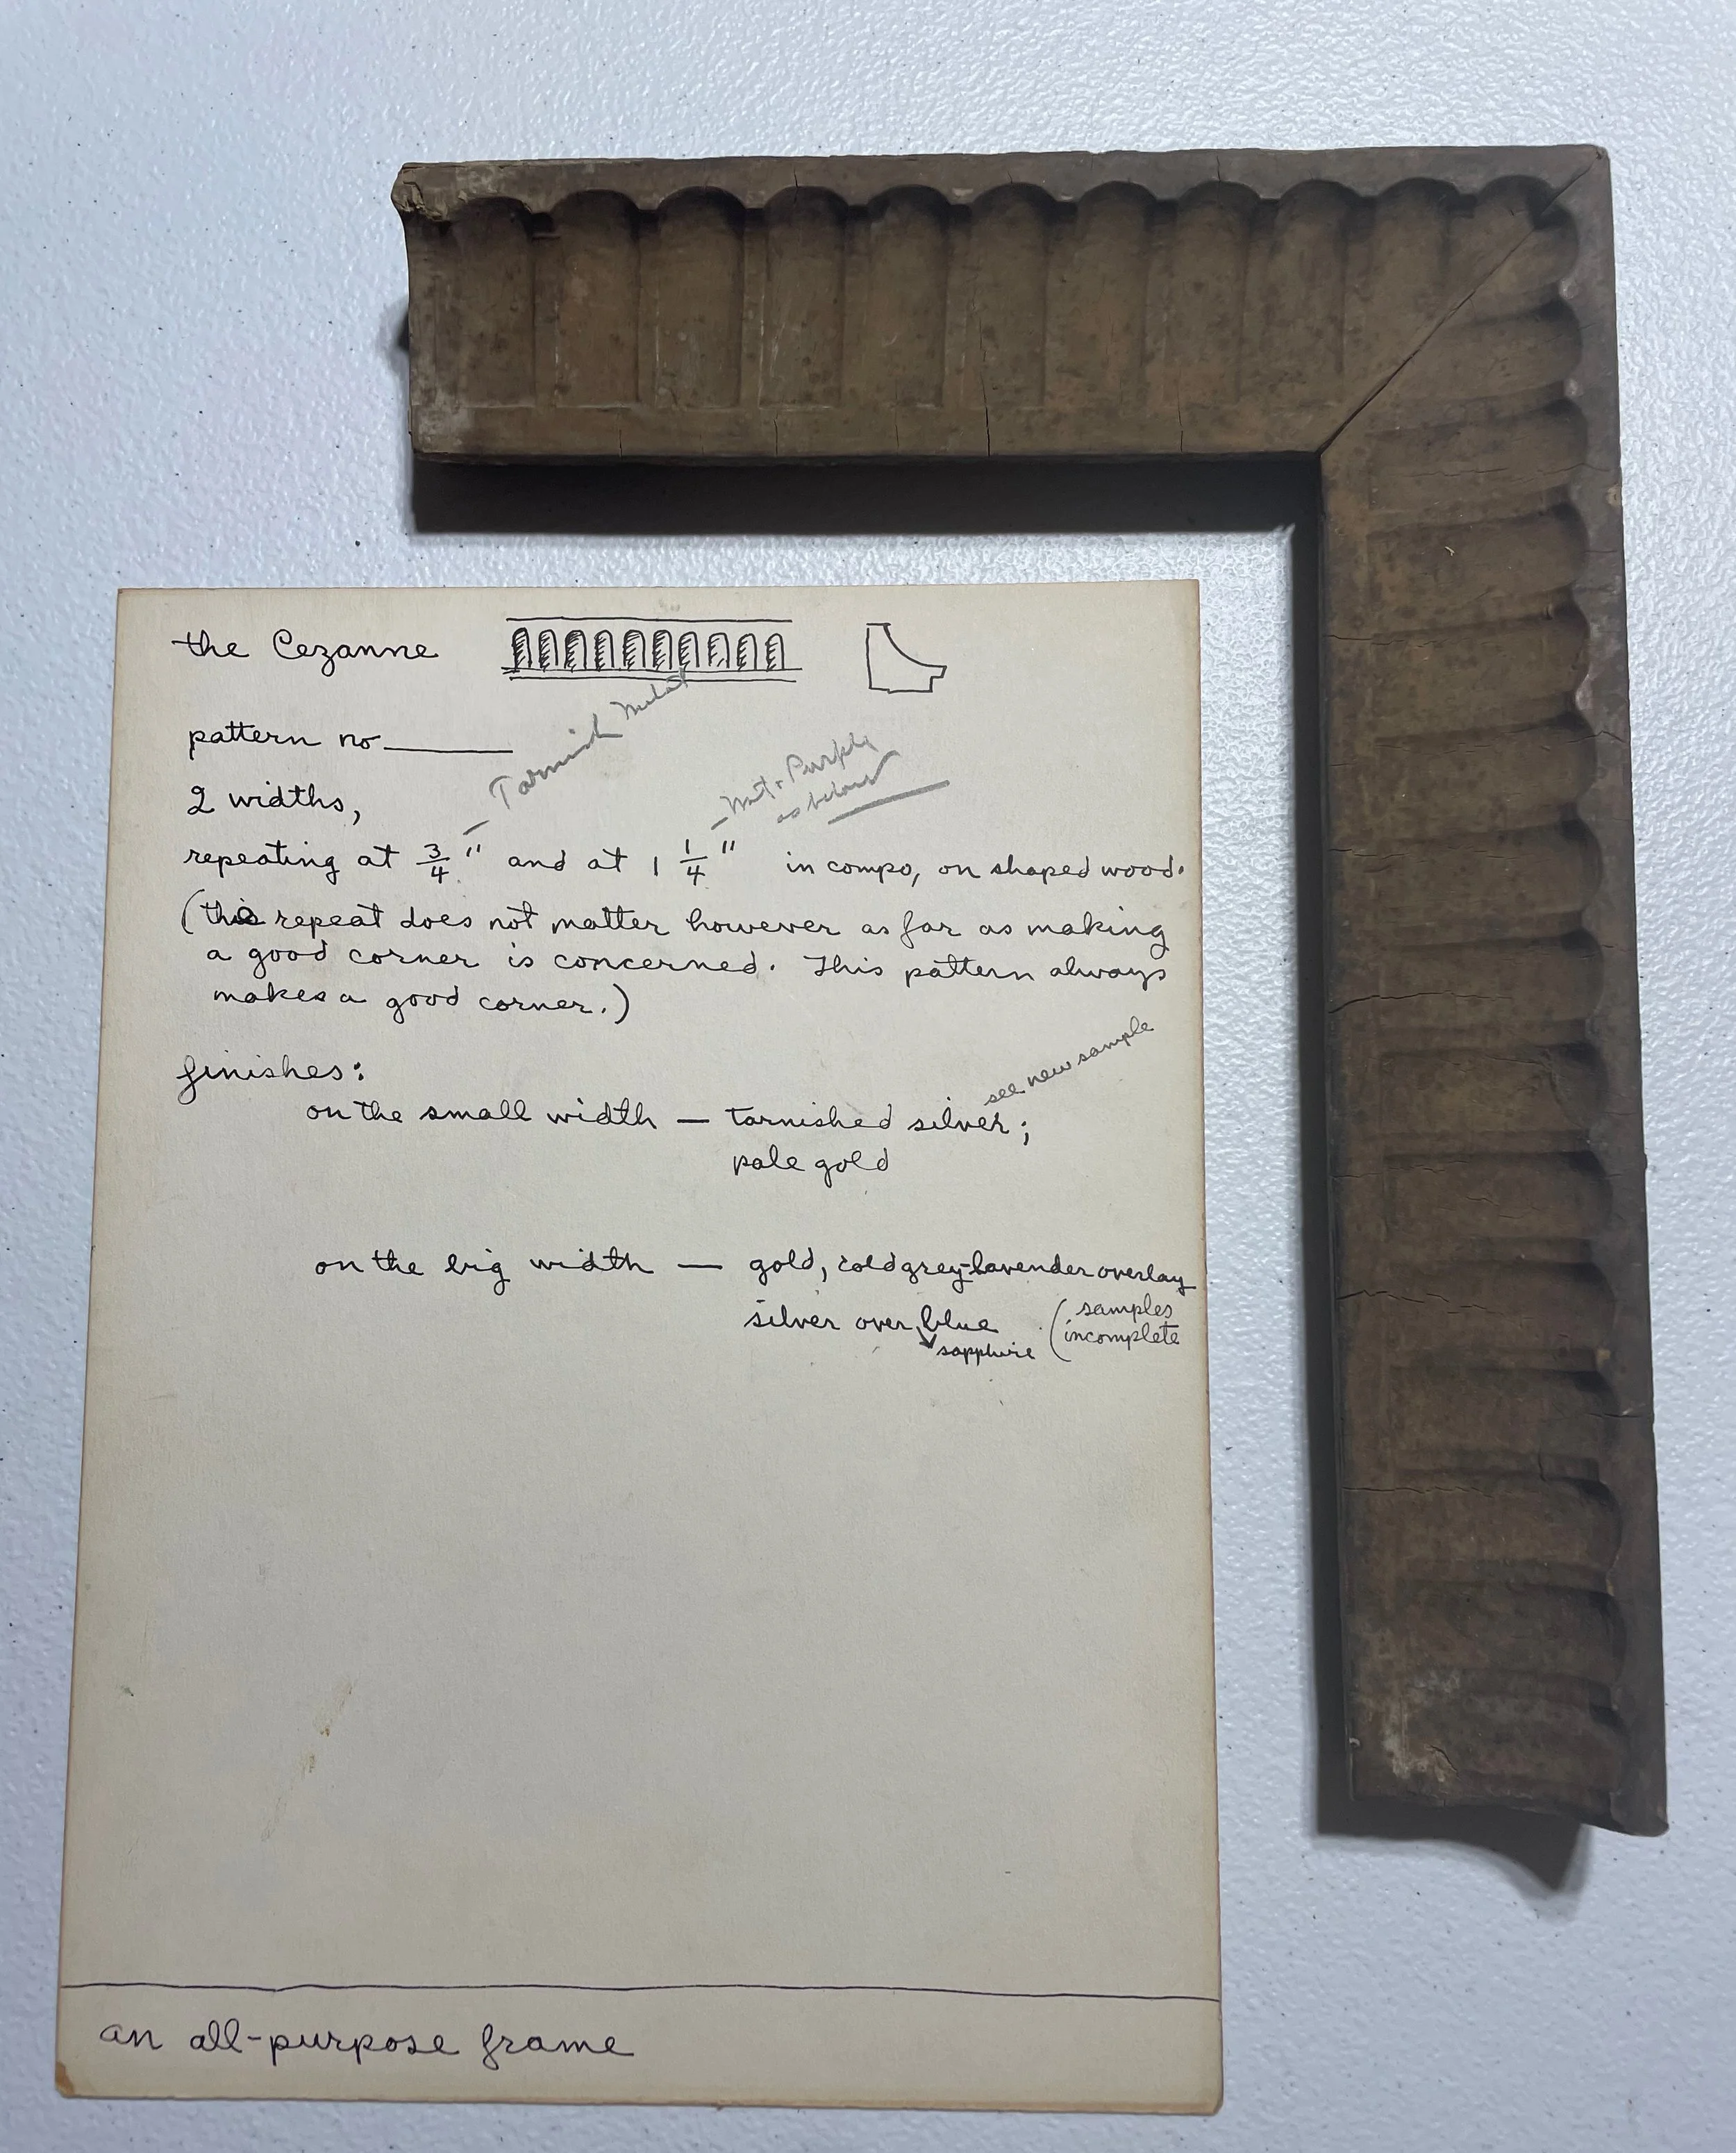 the Cezanne
pattern no
Tarnish
2 widths,
Purple
as below
repeating at 3/4" and at 1 1/4" in compo, on shaped wood.
(this repeat does not matter however as far as making
a good corner is concerned. This pattern always
makes a good corner.)
finishes:
see new sample
on the small width — tarnished silver;
pale gold
on the big width — gold, cold grey-lavender overlay
silver over blue (samples
sapphire incomplete
an all-purpose frame